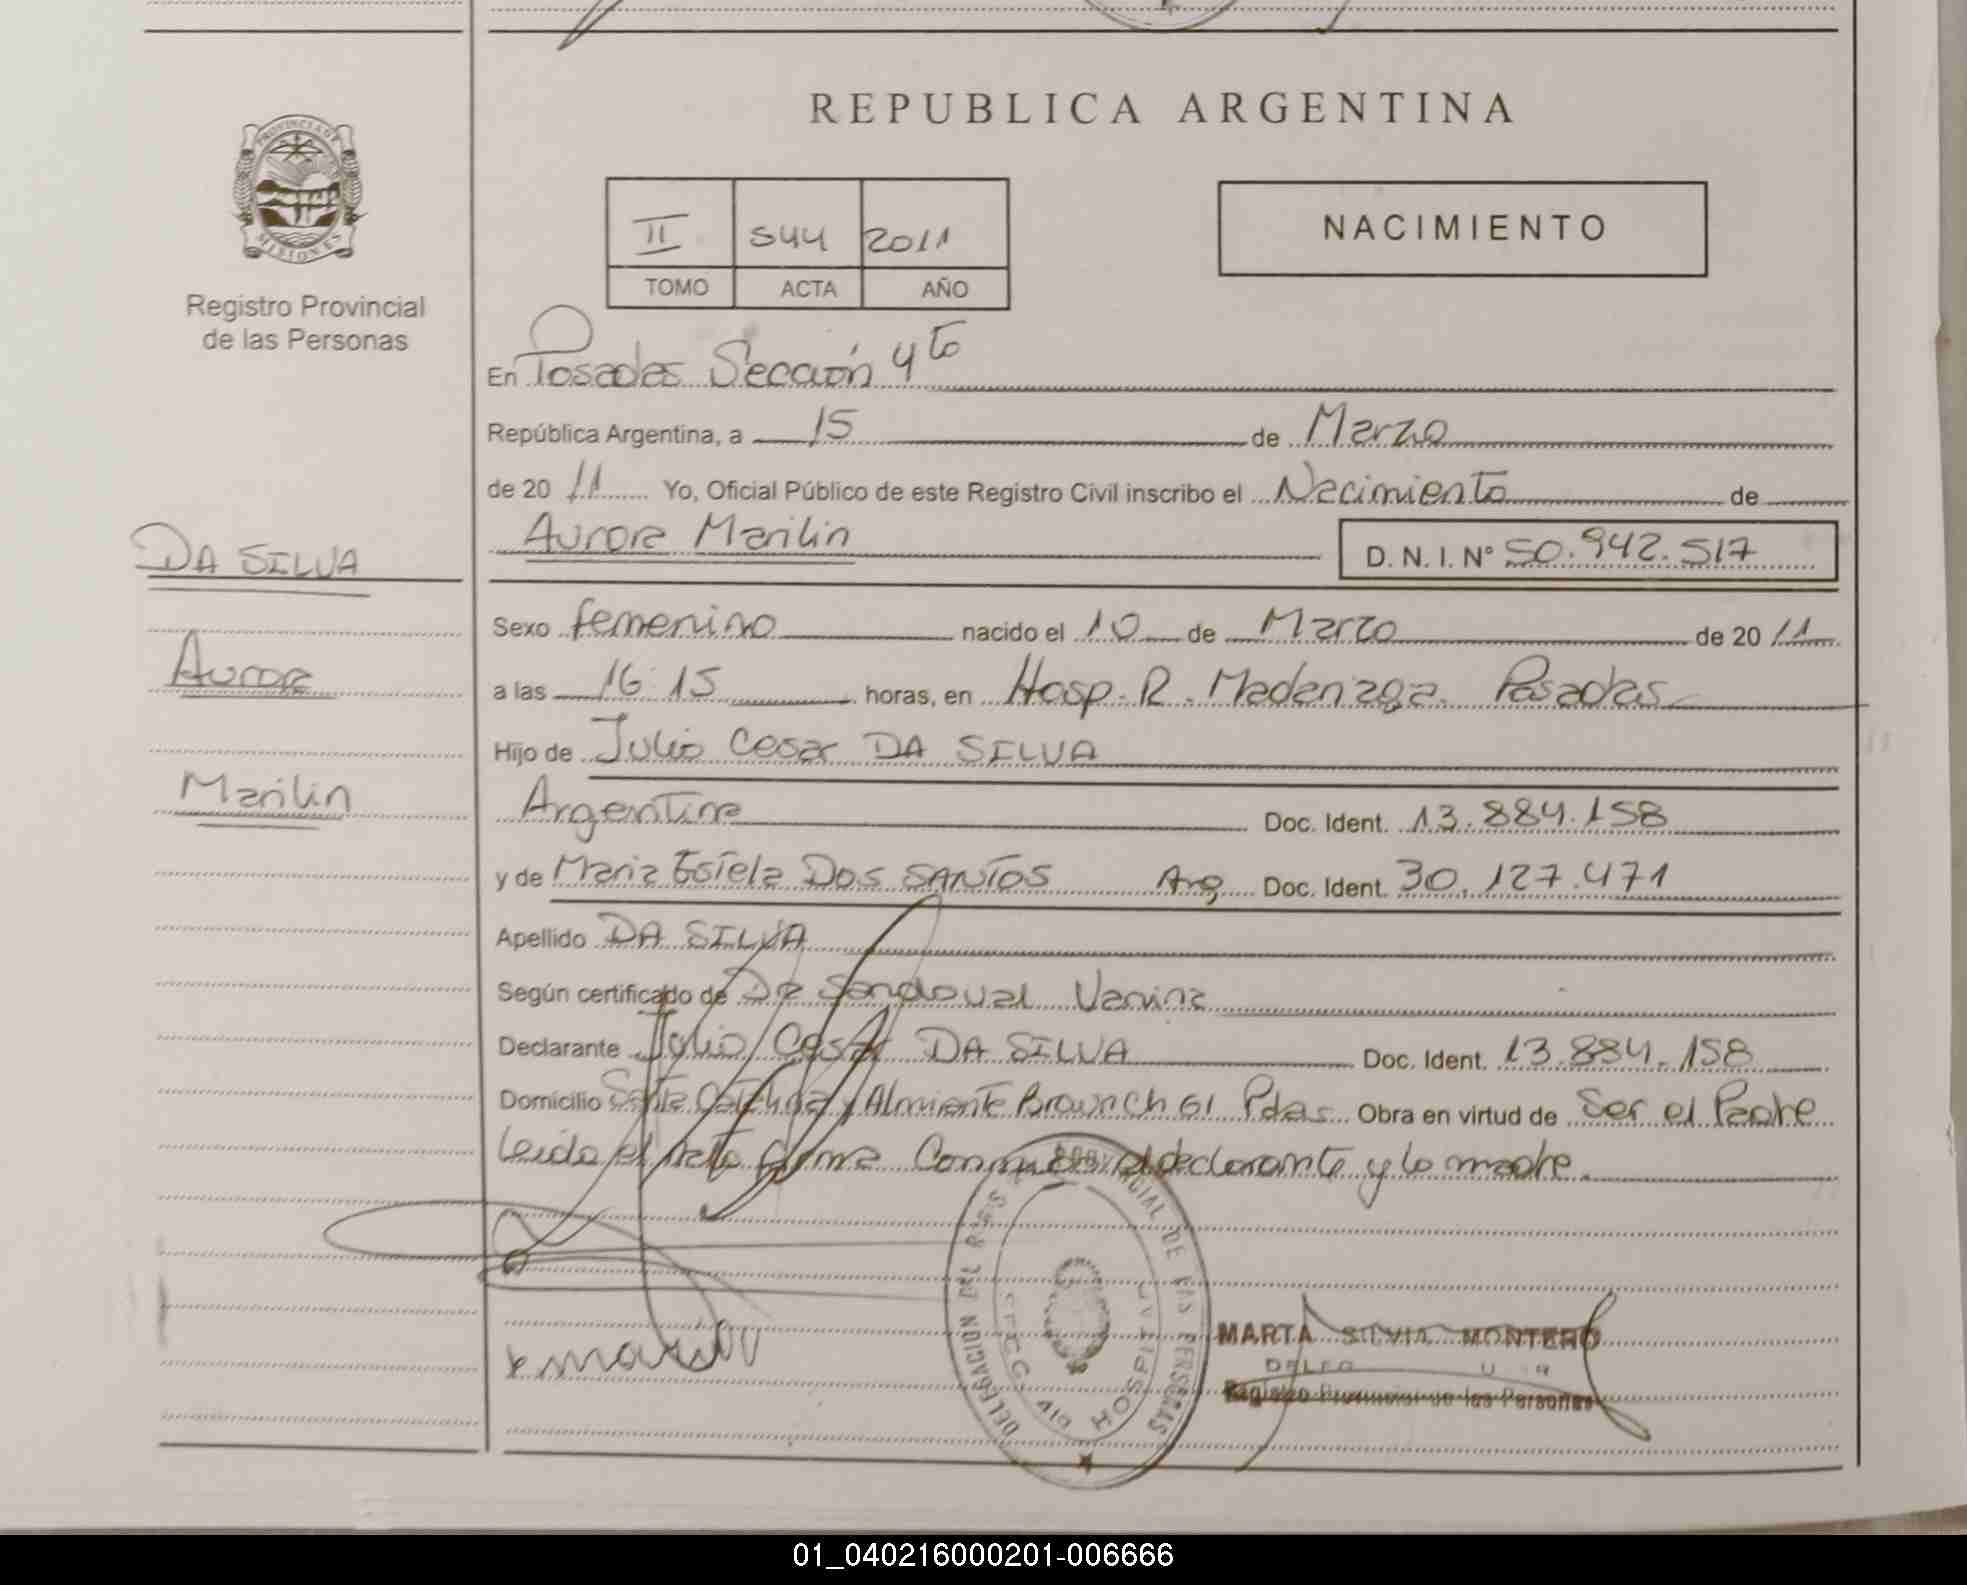 REPUBLICA ARGENTINA
PROVINCIA DE
MISIONES
Registro Provincial
de las Personas
II 544 2011
TOMO ACTA AÑO
NACIMIENTO
En Posadas Sección 4to
República Argentina, a 15 de Marzo
de 2011 Yo, Oficial Público de este Registro Civil inscribo el Nacimiento de
Aurora Marilin D. N. I. N° 50.942.517
DA SILVA
Aurora
Marilin
Sexo femenino nacido el 10 de Marzo de 2011
a las 16:15 horas, en Hosp. R. Madariaga. Posadas
Hijo de Julio Cesar DA SILVA
Argentina Doc. Ident. 13.884.158
y de Maria Estela DOS SANTOS Arg Doc. Ident. 30.127.471
Apellido DA SILVA
Según certificado de Dra Sandoval Vanina
Declarante Julio Cesar DA SILVA Doc. Ident. 13.884.158
Domicilio Santa Catalina y Almirante Brown Ch 61 Pdas. Obra en virtud de Ser el Padre
Leida el acta firma Conmigo el declarante y la madre.
DELEGACION DEL PROVINCIAL DE LAS PERSONAS
HOSPITAL
MARTA SILVIA MONTERO
Registro Provincial de las Personas
01_040216000201-006666